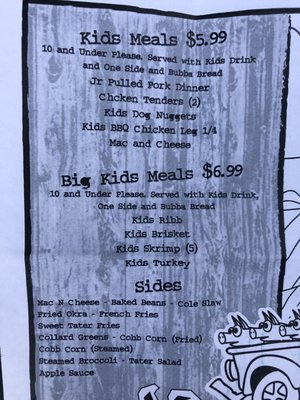 Kids Meals $5.99
10 and Under Please. Served with Kids Drink
and One Side and Bubba Bread
Jr Pulled Pork Dinner
Chcken Tenders (2)
Kids Dog Nuggets
Kids BBQ Chicken Leg 1/4
Mac and Cheese
Big Kids Meals $6.99
10 and Under Please. Served with Kids Drink,
One Side and Bubba Bread
Kids Ribb
Kids Brisket
Kids Skrimp (5)
Kids Turkey
Sides
Mac N Cheese - Baked Beans - Cole Slaw
Fried Okra - French Fries
Sweet Tater Fries
Collard Greens - Cobb Corn (Fried)
Cobb Corn (Steamed)
Steamed Broccoli - Tater Salad
Apple Sauce